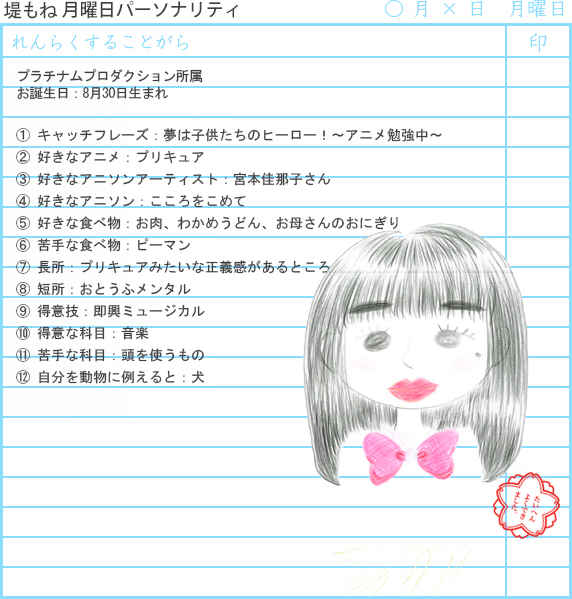 堤もね 月曜日パーソナリティ
〇 月 × 日　月曜日
れんらくすることがら
印
プラチナムプロダクション所属
お誕生日：8月30日生まれ
① キャッチフレーズ：夢は子供たちのヒーロー！～アニメ勉強中～
② 好きなアニメ：プリキュア
③ 好きなアニソンアーティスト：宮本佳那子さん
④ 好きなアニソン：こころをこめて
⑤ 好きな食べ物：お肉、わかめうどん、お母さんのおにぎり
⑥ 苦手な食べ物：ピーマン
⑦ 長所：プリキュアみたいな正義感があるところ
⑧ 短所：おとうふメンタル
⑨ 得意技：即興ミュージカル
⑩ 得意な科目：音楽
⑪ 苦手な科目：頭を使うもの
⑫ 自分を動物に例えると：犬
たいへん
よくでき
ました